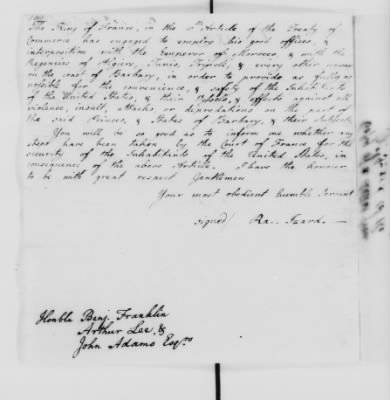 The King of France, in the 8th Article of the Treaty of
Commerce has engaged to employ his good offices, &
interposition with the Emperor of Morocco, & with the
Regencies of Algiers, Tunis, Tripoli, & every other power
on the coast of Barbary, in order to provide as fully as
possible for the convenience, & safety of the Inhabitants
of the United States, & their Vessels, & effects against all
violence, insult, attacks, or depredations on the part of
the said Princes, & States of Barbary, & their Subjects.
You will be so good as to inform me whether any
steps have been taken by the Court of France for the
security of the Inhabitants of the United States, in
consequence of the above Article. I have the honour
to be with great respect Gentlemen
Your most obedient humble Servant
signed/ Ra.. Izard.
Honble Benj. Franklin
Arthur Lee, &
John Adams Esqrs